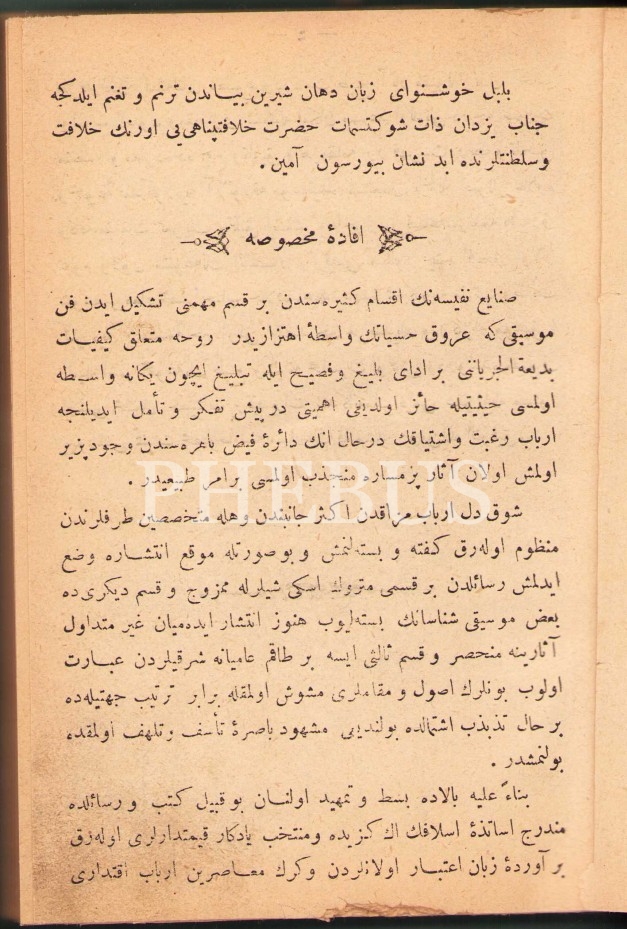 بلبل خوشنوای زبان دهان شیرین بیاندن ترنم و تغنم ایلدکجه
جناب یزدان ذات شوکتسمات حضرت خلافتپناهی‌یی اورنك خلافت
وسلطنتلرنده ابد نشان بیورسون آمین .
افادۀ مخصوصه
صنایع نفیسه‌نك اقسام کثیره‌سندن بر قسم مهمنی تشکیل ایدن فن
موسیقی که عروق حسیاتك واسطۀ اهتزازیدر روحه متعلق کیفیات
بدیعة‌الجریاننی بر ادای بلیغ وفصیح ایله تبلیغ ایچون یکانه واسطه
اولمسی حیثیتیله حائز اولدیغی اهمیتی درپیش تفکر و تأمل ایدیلنجه
ارباب رغبت واشتیاقك درحال انك دائرۀ فیض باهره‌سندن وجودپزیر
اولمش اولان آثار پرمساره منجذب اولمسی برامر طبیعیدر .
شوق دل ارباب مراقدن اکثر جانبندن وهله متخصصین طرفلرندن
منظوم اوله‌رق کفته و بسته‌لنمش و بوصورتله موقع انتشاره وضع
ایدلمش رسائلدن بر قسمی متروك اسکی شیلرله ممزوج و قسم دیکری‌ده
بعض موسیقی شناسانك بسته‌لیوب هنوز انتشار ایده‌میان غیر متداول
آثارینه منحصر و قسم ثالثی ایسه بر طاقم عامیانه شرقیلردن عبارت
اولوب بونلرك اصول و مقاملری مشوش اولمقله برابر ترتیب جهتیله‌ده
برحال تذبذب اشتمالده بولندیغی مشهود باصرۀ تأسف وتلهف اولمقده
بولنمشدر .
بناءً علیه بالاده بسط و تمهید اولنان بوقبیل کتب و رسائلده
مندرج اساتذۀ اسلافك اك کزیده ومنتخب یادکار قیمتدارلری اوله‌رق
برآوردۀ زبان اعتبار اولانلردن وکرك معاصرین ارباب اقتداری
PHEBUS